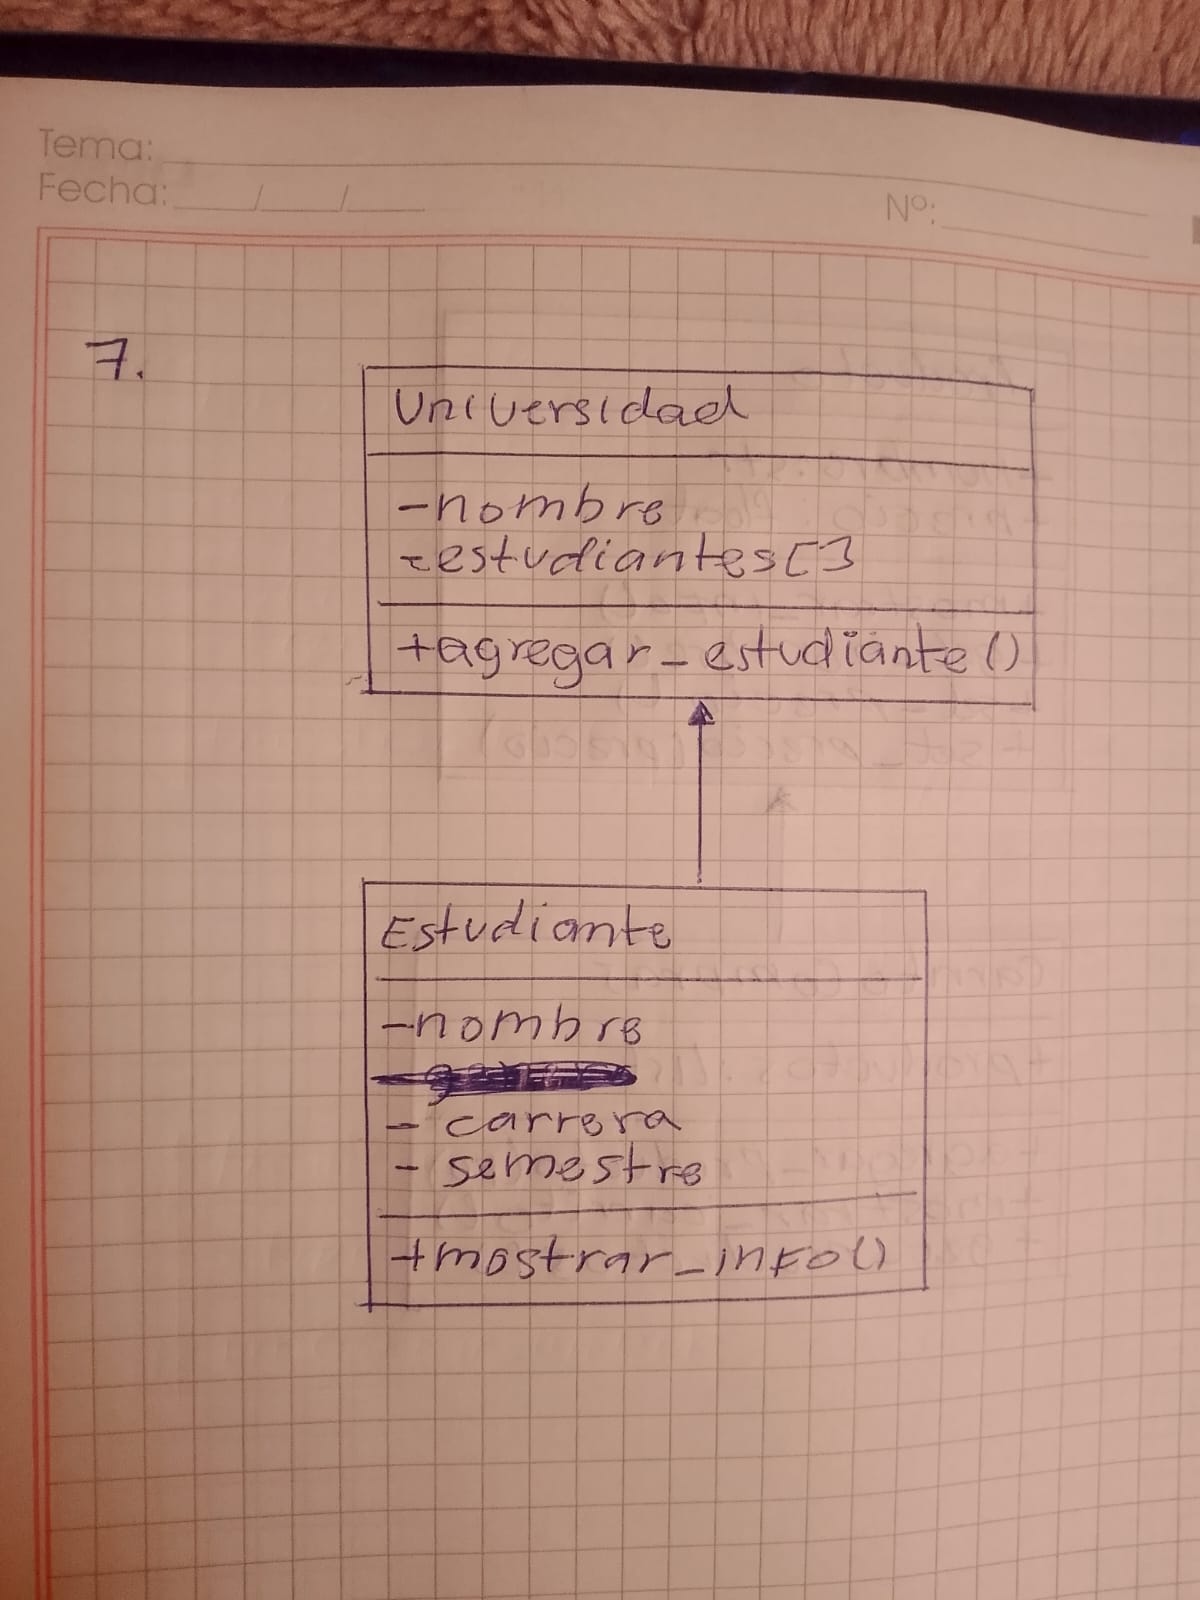 Tema:
Fecha: / /
Nº:
7.
Universidad
-nombre
-estudiantes[]
+agregar_estudiante()
Estudiante
-nombre
- carrera
- semestre
+mostrar_info()